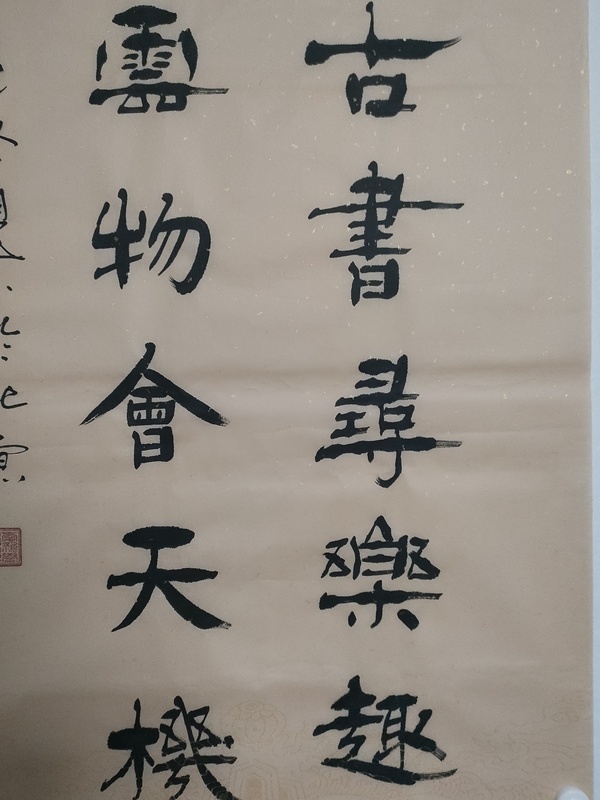 古書尋樂趣
雲物會天機